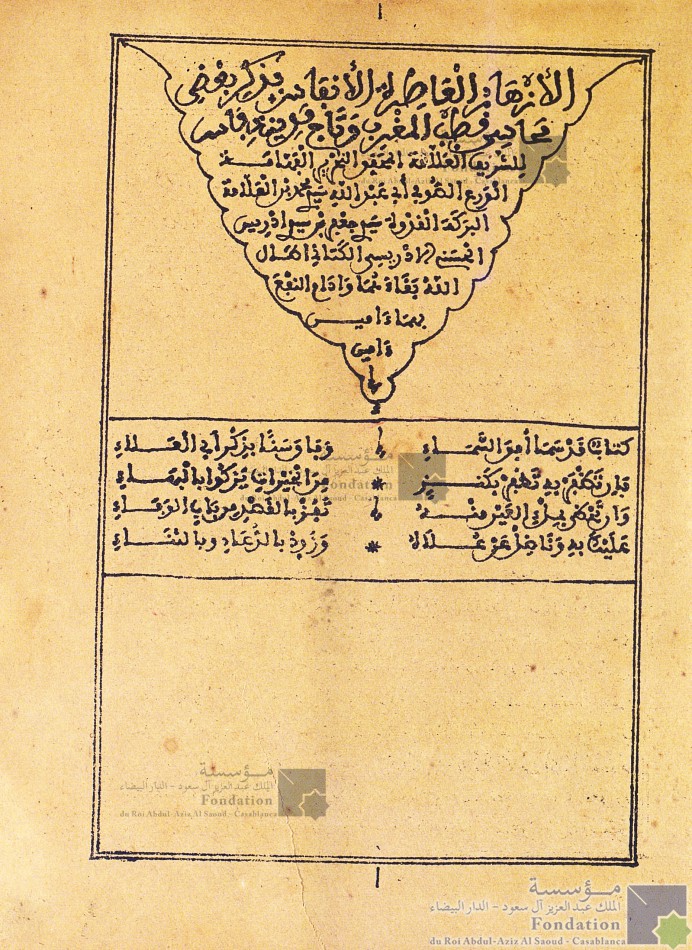 الأزهار العاطرة الأنفاس بذكر بعض
محاسن قطب المغرب وتاج مدينة فاس
للشريف العلامة المحقق النحرير الفهامة
الورع الصوفي أبي عبد الله سيدي محمد بن العلامة
البركة القدوة سيدي جعفر بن سيدي ادريس
الحسني الإدريسي الكتاني اطال
الله بقاءهما وادام النفع
بهما ءامين
ءامين
كتابنا قد سما أفق السماء وفا وسنا بذكر أبي العلاء
فإن تظفر به تظفر بكنز من الخيرات يزكوا بالبهاء
وان تنظر
عليك به وناضل عن علاه وزوده بالدعاء وبالثناء
مؤسسة
الملك عبد العزيز آل سعود - الدار البيضاء
Fondation
du Roi Abdul-Aziz Al Saoud - Casablanca
مؤسسة
الملك عبد العزيز آل سعود - الدار البيضاء
Fondation
du Roi Abdul-Aziz Al Saoud - Casablanca